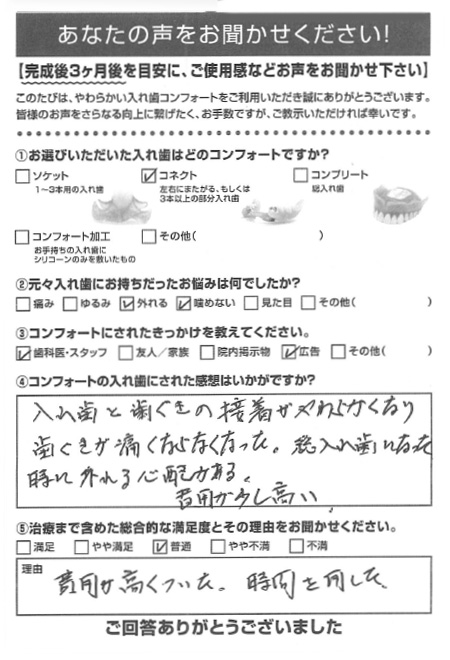 あなたの声をお聞かせください!
【完成後3ヶ月後を目安に、ご使用感などお声をお聞かせ下さい】
このたびは、やわらかい入れ歯コンフォートをご利用いただき誠にありがとうございます。
皆様のお声をさらなる向上に繋げたく、お手数ですが、ご教示いただければ幸いです。
①お選びいただいた入れ歯はどのコンフォートですか?
□ソケット ☑コネクト □コンプリート
1〜3本用の入れ歯 左右にまたがる、もしくは 総入れ歯
3本以上の部分入れ歯
□コンフォート加工 □その他( )
お手持ちの入れ歯に
シリコーンのみを敷いたもの
②元々入れ歯にお持ちだったお悩みは何でしたか?
□痛み □ゆるみ ☑外れる ☑噛めない □見た目 □その他( )
③コンフォートにされたきっかけを教えてください。
☑歯科医・スタッフ □友人/家族 □院内掲示物 ☑広告 □その他( )
④コンフォートの入れ歯にされた感想はいかがですか?
入れ歯と歯ぐきの接着がやわらかくなり
歯ぐきが痛くならなくなった。総入れ歯になった
時に外れる心配がある。
費用が少し高い。
⑤治療まで含めた総合的な満足度とその理由をお聞かせください。
□満足 □やや満足 ☑普通 □やや不満 □不満
理由
費用が高くついた。時間を
ご回答ありがとうございました